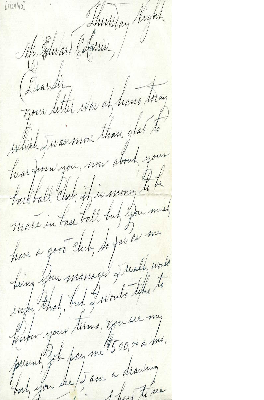 Thursday Night
Mr Edward
Dear Sir
your letter was at hand today
which I was more than glad to
hear from you, now about your
base ball club if is money to be
made in base ball but you must
have a good club, so far as me
being your manager I really would
enjoy that, but I would like to
know your terms, you see my
present job pay me $ a mo,
but you see I am a drawing